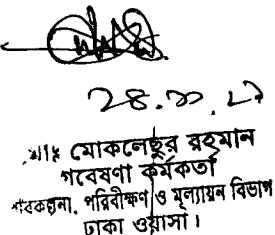 ২৪.১১.১৭
মোঃ মোকলেছুর রহমান
গবেষণা কর্মকর্তা
পরিকল্পনা, পরিবীক্ষণ ও মূল্যায়ন বিভাগ
ঢাকা ওয়াসা।